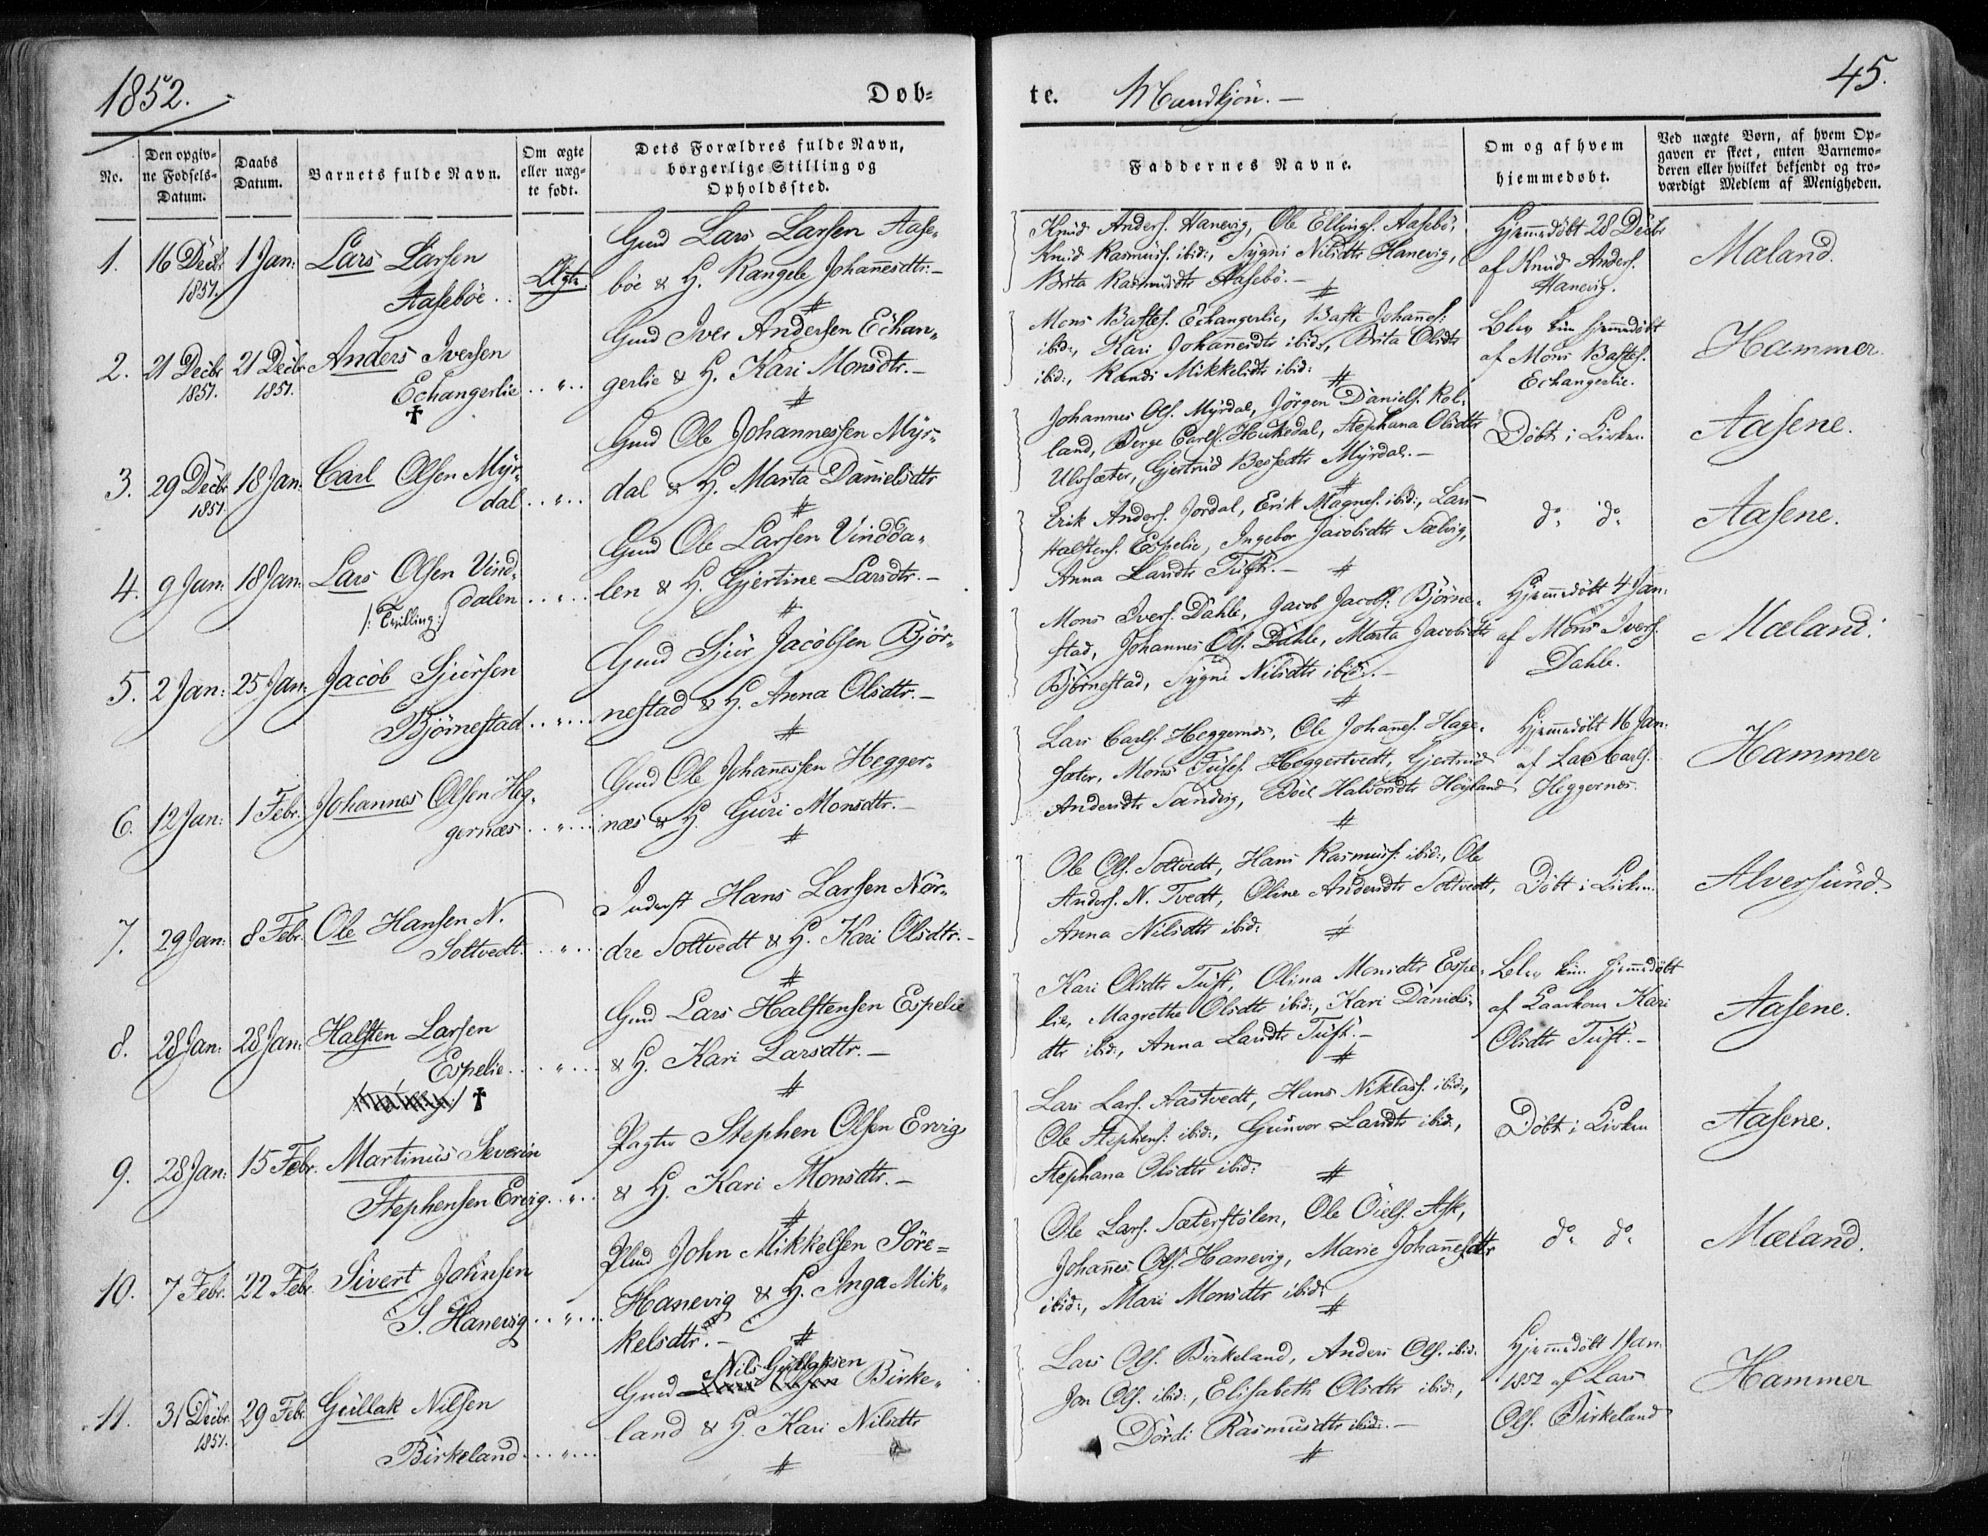 1852.
Døb-
te. Mandkjön.
45.
No.
Den opgiv-
ne Fødsels-
Datum.
Daabs
Datum.
Barnets fulde Navn.
Om ægte
eller uæg-
te født.
Dets Forældres fulde Navn,
borgerlige Stilling og
Opholdssted.
Faddernes Navne.
Om og af hvem
hjemmedøbt.
Ved uægte Børn, af hvem Op-
gaven er skeet, enten Barnemo-
deren eller hvilket bekjendt og tro-
værdigt Medlem af Menigheden.
1. 16 Decbr 1851. 1 Jan:
Lars Larsen
Aaseböe
Ægte
Gmd Lars Larsen Aase-
böe & H. Rangele Johannesdtr:
Knud Anders. Hanevig, Ole Ellings. Aasebö,
Knud Rasmuss. ibid:, Sygni Nilsdtr Hanevig,
Brita Rasmusdtr Aasebö.
Hjemmedöbt 28 Decbr
af Knud Anders.
Hanevig.
Mæland.
2. 21 Decbr 1851. 21 Decbr 1851.
Anders Iversen
Echangerlie †
Gmd Iver Andersen Echan-
gerlie & H. Kari Monsdtr.
Mons Bastes. Echangerlie, Baste Johannes:
ibid:, Kari Johannesdtr ibid:, Brita Olsdtr
ibid:, Randi Mikkelsdtr ibid:
Blev kun hjemmedöbt
af Mons Bastes.
Echangerlie.
Hammer.
3. 29 Decbr 1851. 18 Jan:
Carl Olsen Myr-
dal
Gmd Ole Johannessen Myr-
dal & H. Marta Danielsdtr
Johannes Ols. Myrdal, Jörgen Daniels. Rol-
land, Berge Carls. Haukedal, Stephana Olsdtr
Ulvsæter, Gjertrud Bessedtr Myrdal.
Döbt i Kirken
Aasene.
4. 9 Jan: 18 Jan:
Lars Olsen Vind-
dalen
/: Tvilling :/
Gmd Ole Larsen Vindda-
len & H. Gjertine Larsdtr.
Erik Anders. Jordal, Erik Magnes. ibid:, Lars
Halstens. Espelie, Ingebor Jacobsdtr Sælvig,
Anna Larsdtr Tuft.
do do
Aasene.
5. 2 Jan: 25 Jan:
Jacob Sjursen
Björnestad
Gmd Sjur Jacobsen Björ-
nestad & H. Anna Olsdtr.
Mons Ivers. Dahle, Jacob Jacobs. Björne-
stad, Johannes Ols. Dahle, Marta Jacobsdtr
Björnestad, Sygni Nilsdtr ibid:.
Hjemmedöbt 4 Jan:
af Mons Ivers.
Dahle.
Mæland.
6. 12 Jan: 1 Febr.
Johannes Olsen Heg-
gernæs
Gmd Ole Johannessen Hegger-
næs & H. Guri Monsdtr.
Lars Carls. Heggernæs, Ole Johannes. Hage-
sæter, Mons Tufes. Heggertvedt, Gjertrud
Andersdtr Sandvig, Boel Halvorsdtr Höyland
Hjemmedöbt 16 Jan:
af Lars Carls.
Heggernæs.
Hammer
7. 29 Jan: 8 Febr.
Ole Hansen N.
Soltvedt.
Inderst Hans Larsen Nör-
dre Soltvedt & H. Kari Olsdtr.
Ole Ols. Soltvedt, Hans Rasmuss. ibid:, Ole
Anders. N. Tvedt, Oline Andersdtr Soltvedt,
Anna Nilsdtr ibid:
Döbt i Kirken.
Alversund
8. 28 Jan: 28 Jan:
Halsten Larsen
Espelie †
Gmd Lars Halstensen Espelie
& H. Kari Larsdtr.
Kari Olsdtr Tuft, Olina Monsdtr Espe-
lie, Magretha Olsdtr ibid:, Kari Daniels-
dtr ibid:, Anna Larsdtr Tuft.
Blev kun hjemmedöbt
af Kari
Olsdtr Tuft.
Aasene.
9. 28 Jan: 15 Febr.
Martinus Severin
Stephensen Ervig
Pagter Stephen Olsen Ervig
& H. Kari Monsdtr.
Lars Lars. Aastvedt, Hans Niklas. ibid:,
Ole Stephens. ibid:, Gunvor Larsdtr ibid:,
Stephana Olsdtr ibid:
Döbt i Kirken
Aasene.
10. 7 Febr. 22 Febr.
Sivert Johnsen
S. Hanevig
Plmd John Mikkelsen Söre-
Hanevig & H. Inga Mik-
kelsdtr.
Ole Lars. Sæterstölen, Ole Öiels. Ask,
Johannes Ols. Hanevig, Marie Johannesdtr
ibid:, Mari Monsdtr ibid:
do do
Mæland.
11. 31 Decbr 1851. 29 Febr.
Gullak Nilsen
Birkeland
Gmd Nils Gullaksen Birke-
land & H. Kari Nilsdtr
Lars Ols. Birkeland, Anders Ols. ibid:
Jon Ols. ibid:, Elisabeth Olsdtr ibid:,
Dördi Rasmusdtr ibid:.
Hjemmedöbt 1 Jan:
1852 af Lars
Ols. Birkeland
Hammer